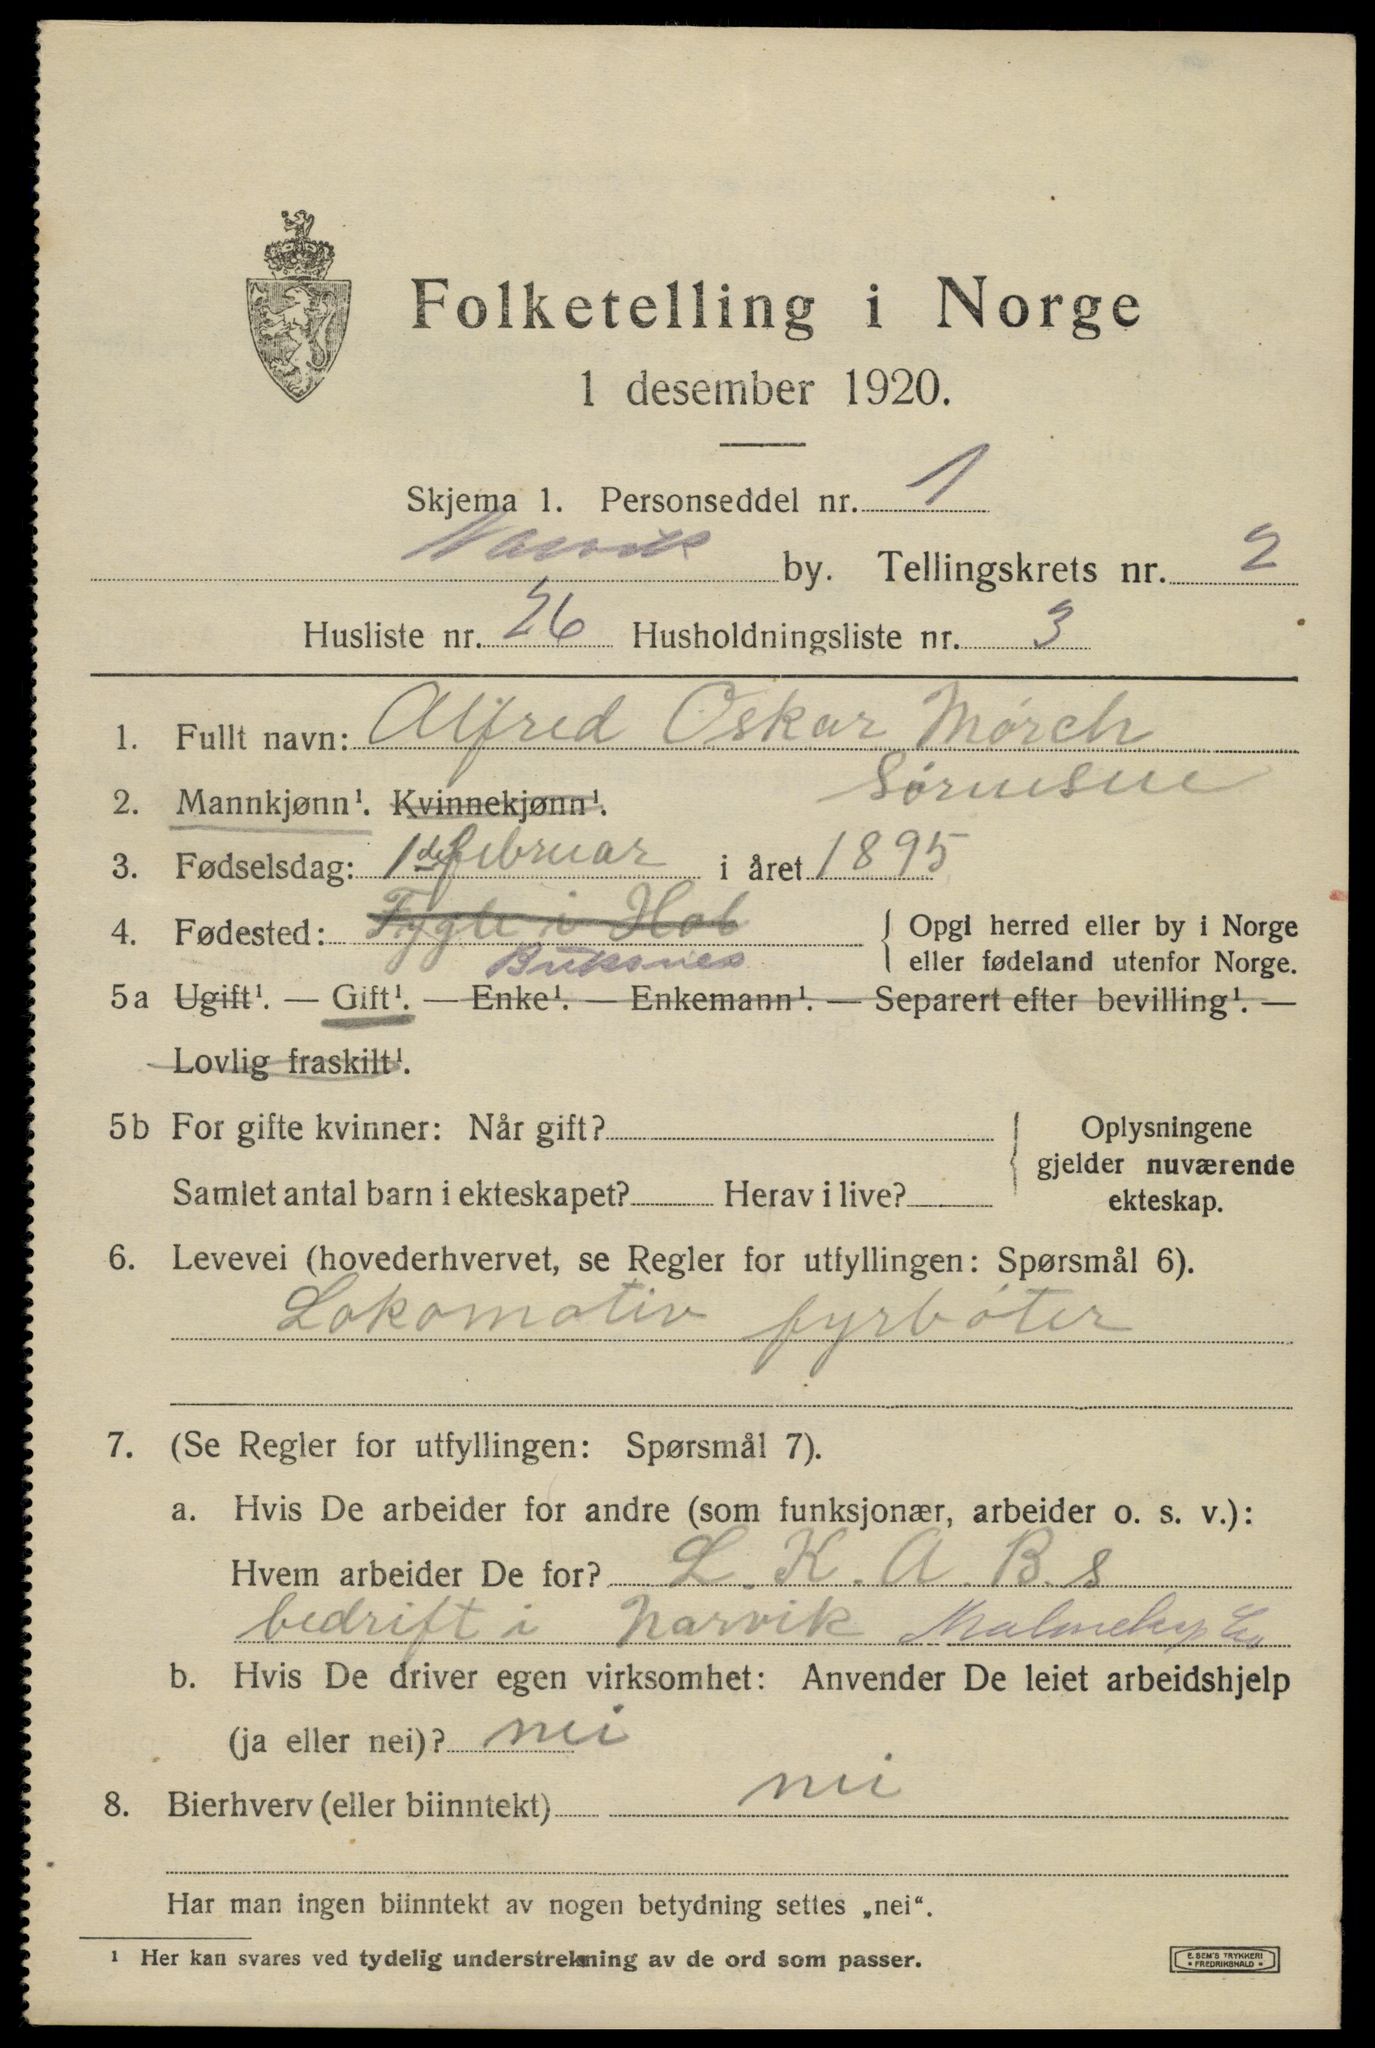 Folketelling i Norge
1 desember 1920.
Skjema 1. Personseddel nr. 1
Narvik by. Tellingskrets nr. 2
Husliste nr. 26 Husholdningsliste nr. 3
1. Fullt navn: Alfred Oskar Mörch
2. Mannkjønn¹. Kvinnekjønn¹.
3. Fødselsdag: 1de februar i året 1895
4. Fødested: Fygle i Hol { Opgi herred eller by i Norge
Buksnes eller fødeland utenfor Norge.
5a Ugift¹. — Gift¹. — Enke¹. — Enkemann¹. — Separert efter bevilling¹. —
Lovlig fraskilt¹.
5b For gifte kvinner: Når gift? { Oplysningene
gjelder nuværende
Samlet antal barn i ekteskapet? Herav i live? ekteskap.
6. Levevei (hovederhvervet, se Regler for utfyllingen: Spørsmål 6).
Lokomotiv fyrböter
7. (Se Regler for utfyllingen: Spørsmål 7).
a. Hvis De arbeider for andre (som funksjonær, arbeider o. s. v.):
Hvem arbeider De for? L. K. A. B. s
bedrift i Narvik
b. Hvis De driver egen virksomhet: Anvender De leiet arbeidshjelp
(ja eller nei)? nei
8. Bierhverv (eller biinntekt) nei
Har man ingen biinntekt av nogen betydning settes „nei“.
¹ Her kan svares ved tydelig understrekning av de ord som passer.
E. SEM'S TRYKKERI
FREDRIKSHALD